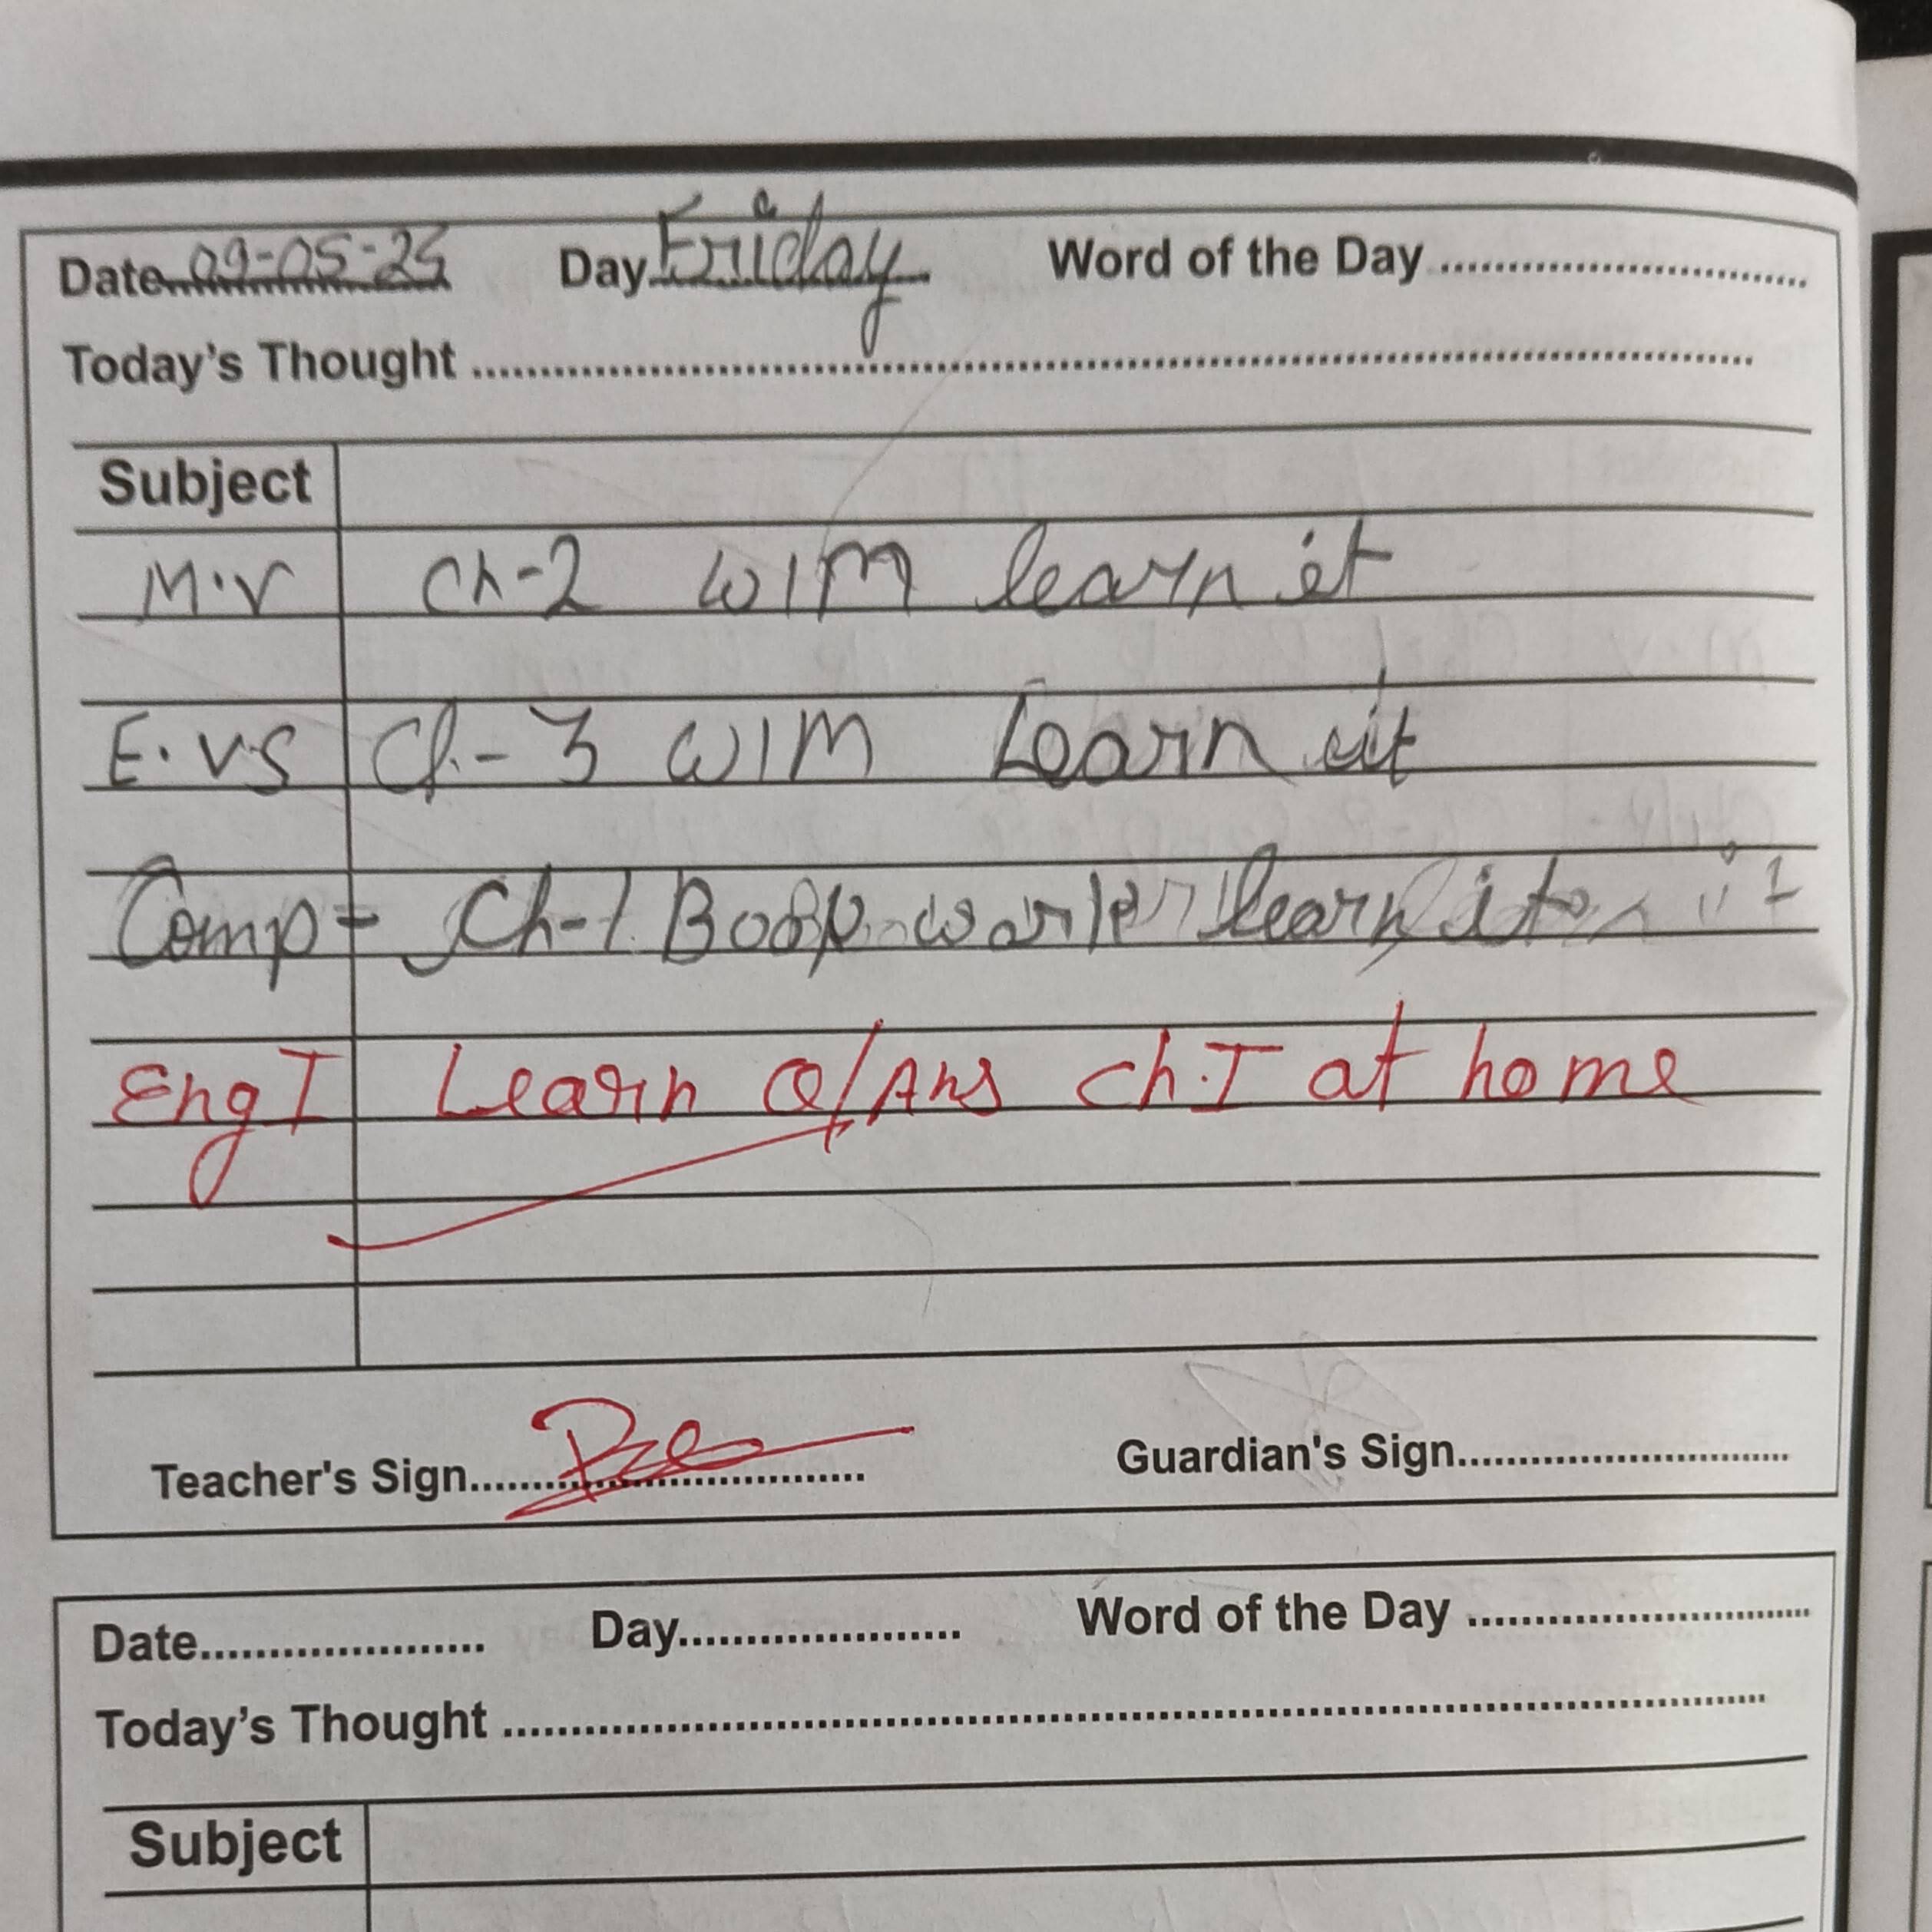 Date 09-05-25 Day Friday Word of the Day
Today's Thought
Subject
M.V Ch-2 W/M learn it
E.VS Ch-3 W/M Learn it
Comp- Ch-1 Book work learn it
Eng I Learn Q/Ans Ch.I at home
Teacher's Sign Guardian's Sign
Date Day Word of the Day
Today's Thought
Subject